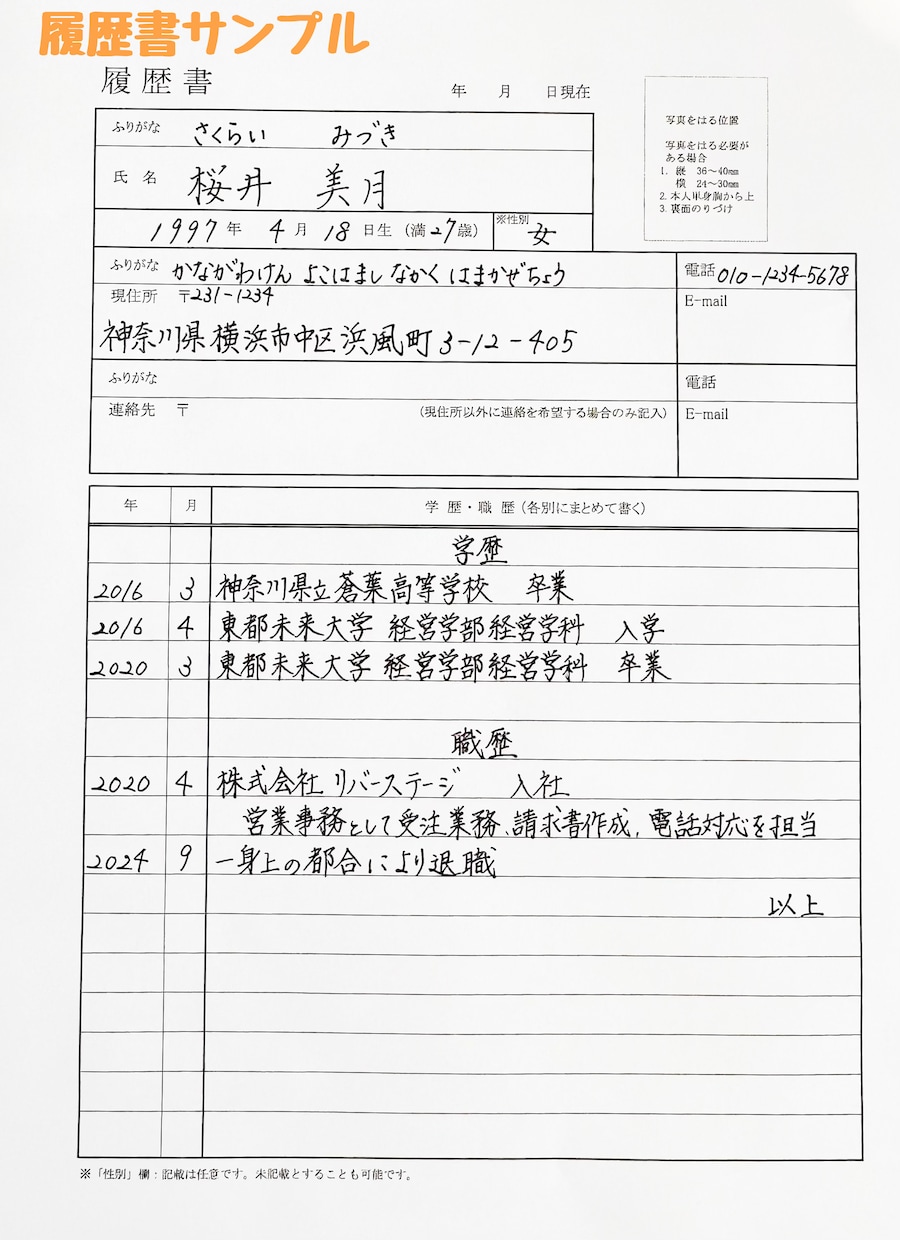 履歴書サンプル
履歴書
年 月 日現在
写真をはる位置
写真をはる必要が
ある場合
1. 縦 36～40mm
横 24～30mm
2. 本人単身胸から上
3. 裏面のりづけ
ふりがな さくらい みづき
氏 名 桜井 美月
1997年 4月 18日生 (満27歳) ※性別 女
ふりがな かながわけん よこはまし なかく はまかぜちょう
電話 010-1234-5678
現住所 〒231-1234
E-mail
神奈川県横浜市中区浜風町3-12-405
ふりがな
電話
連絡先 〒 (現住所以外に連絡を希望する場合のみ記入)
E-mail
年 月 学歴・職歴(各別にまとめて書く)
学歴
2016 3 神奈川県立蒼葉高等学校 卒業
2016 4 東都未来大学 経営学部経営学科 入学
2020 3 東都未来大学 経営学部経営学科 卒業
職歴
2020 4 株式会社リバーステージ 入社
営業事務として受注業務、請求書作成、電話対応を担当
2024 9 一身上の都合により退職
以上
※「性別」欄：記載は任意です。未記載とすることも可能です。